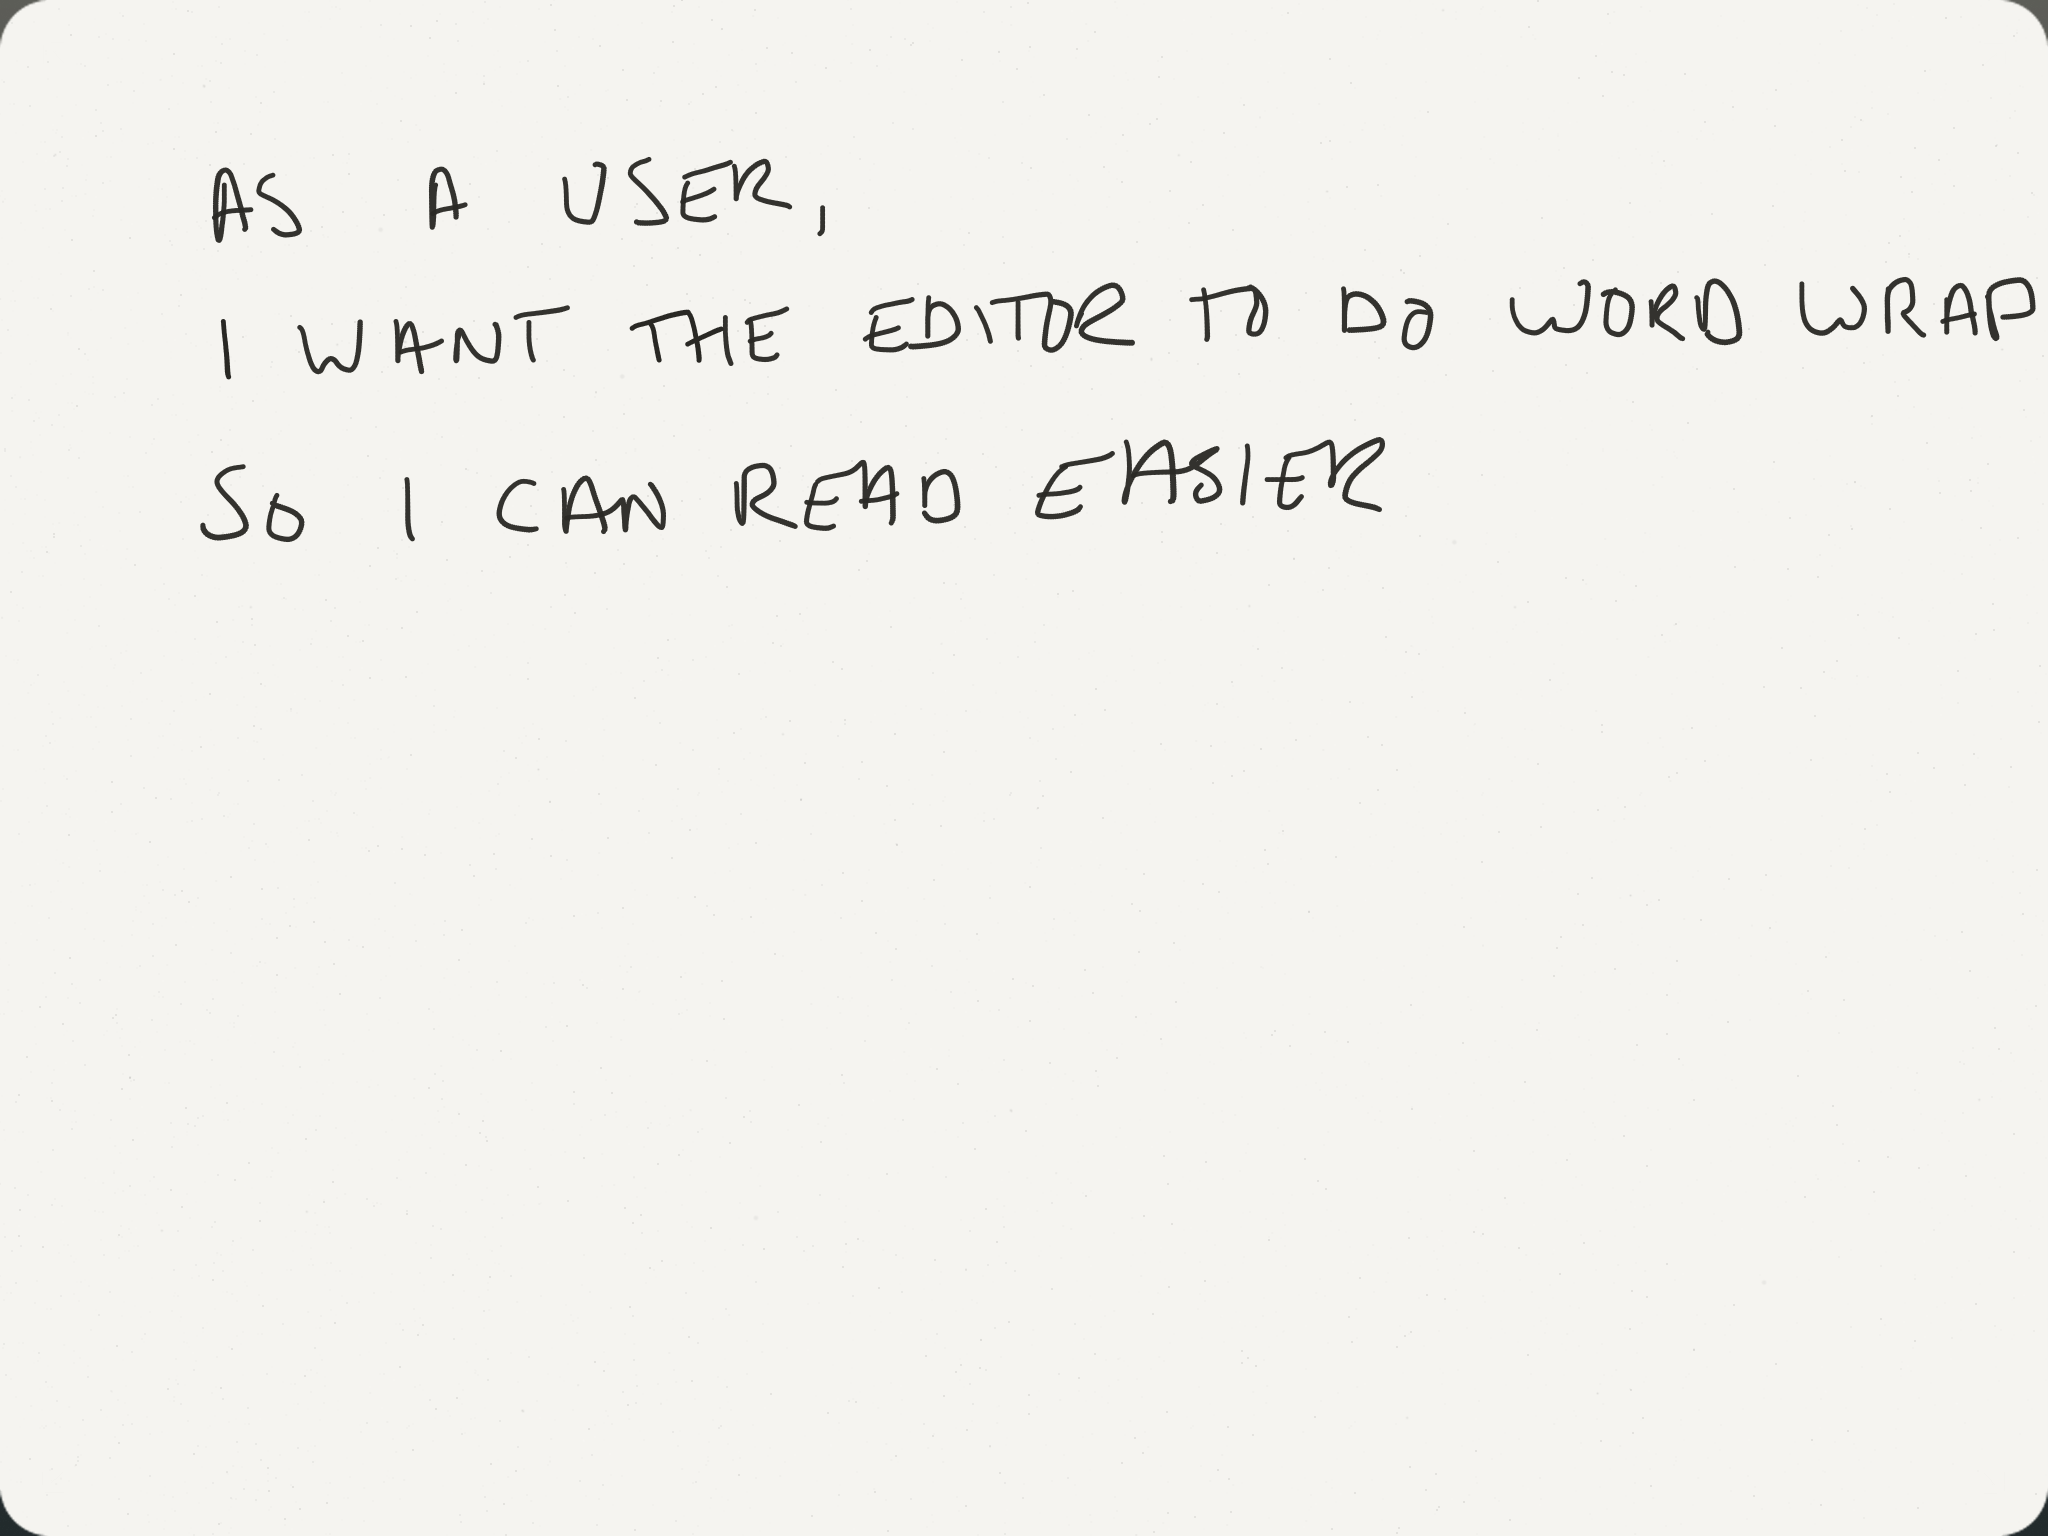 AS A USER,
I WANT THE EDITOR TO DO WORD WRAP
SO I CAN READ EASIER